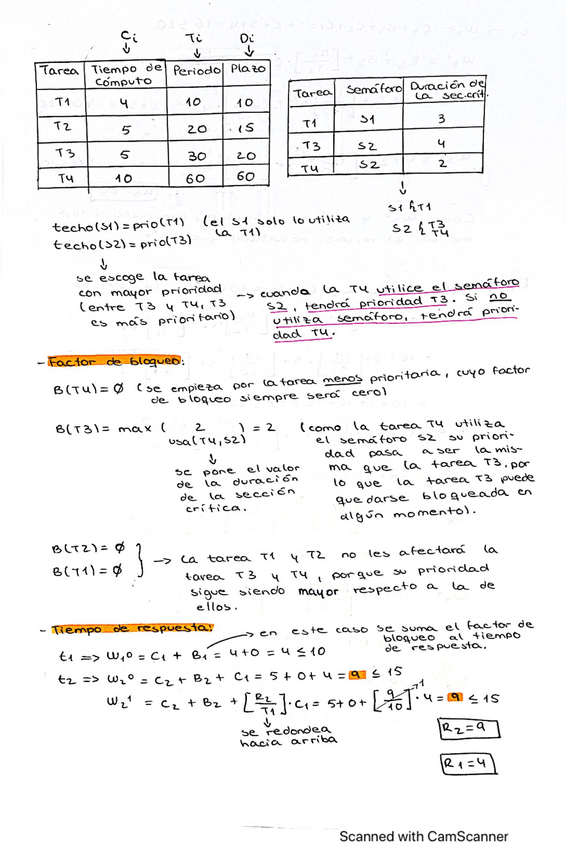 Ci Ti Di
Tarea Tiempo de cómputo Periodo Plazo
T1 4 10 10
T2 5 20 15
T3 5 30 20
T4 10 60 60
Tarea Semáforo Duración de la sec.crít.
T1 S1 3
T3 S2 4
T4 S2 2
S1 { T1
S2 { T3 T4
techo(S1) = prio(T1) (el S1 solo lo utiliza
la T1)
techo(S2) = prio(T3)
se escoge la tarea
con mayor prioridad
(entre T3 y T4, T3
es más prioritario)
→ cuando la T4 utilice el semáforo
S2, tendrá prioridad T3. Si no
utiliza semáforo, tendrá priori-
dad T4.
- Factor de bloqueo:
B(T4) = ∅ (se empieza por la tarea menos prioritaria, cuyo factor
de bloqueo siempre será cero)
B(T3) = max ( 2 ) = 2
usa(T4,S2)
se pone el valor
de la duración
de la sección
crítica.
(como la tarea T4 utiliza
el semáforo S2 su priori-
dad pasa a ser la mis-
ma que la tarea T3, por
lo que la tarea T3 puede
quedarse bloqueada en
algún momento).
B(T2) = ∅
B(T1) = ∅
→ La tarea T1 y T2 no les afectará la
tarea T3 y T4, porque su prioridad
sigue siendo mayor respecto a la de
ellos.
- Tiempo de respuesta:
→ en este caso se suma el factor de
bloqueo al tiempo
de respuesta.
t1 => W1⁰ = C1 + B1 = 4+0 = 4 ≤ 10
t2 => W2⁰ = C2 + B2 + C1 = 5 + 0 + 4 = 9 ≤ 15
W2¹ = C2 + B2 + [R2/T1] · C1 = 5+0+ [9/10]¹ · 4 = 9 ≤ 15
se redondea
hacia arriba
R2 = 9
R1 = 4
Scanned with CamScanner